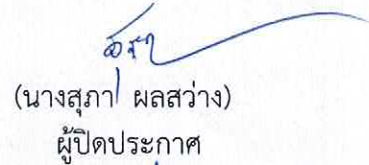 (นางสุภา ผลสว่าง)
ผู้ปิดประกาศ